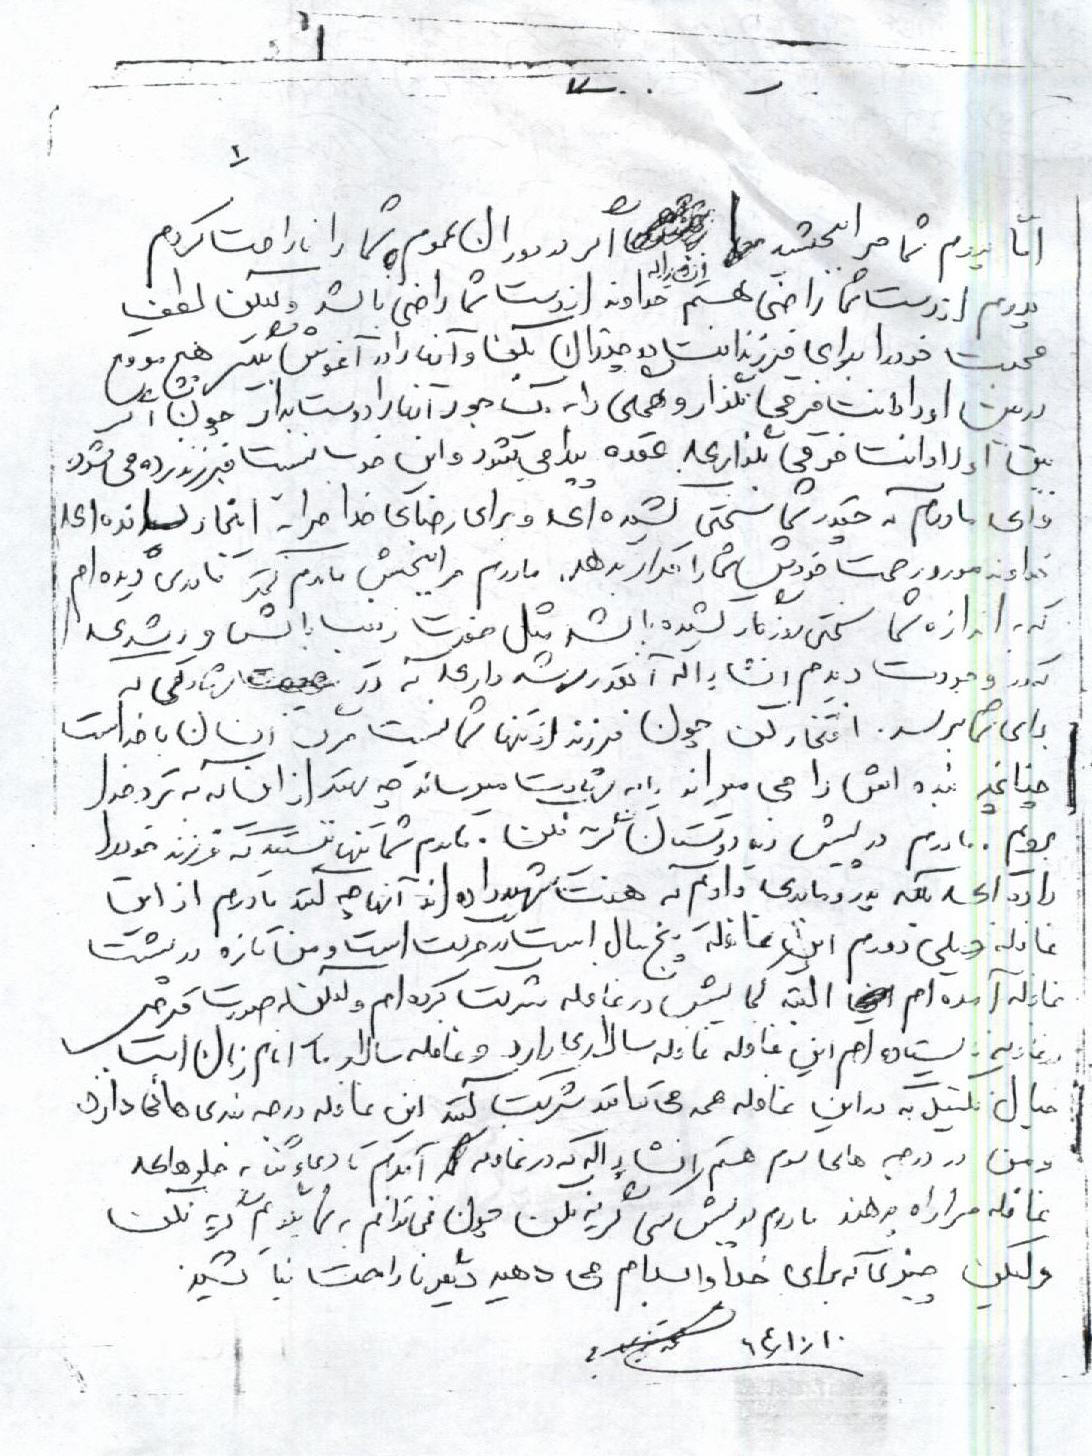 ۱
امّا پدرم شما مرا ببخشید اگر در دوران عمرم شما را ناراحت کردم
پدرم از دست شما راضی هستم خداوند از دست شما راضی باشد ولیکن لطف
محبت خود را برای فرزندانت دو چندان بکن و آنها را در آغوش بگیر هیچ موقع
در بین اولادانت فرقی نگذار و همه‌ی را یک جور آنها را دوست بدار چون اگر
بین اولادانت فرقی بگذاری عقده پیدا می‌شود و این خود نسبت فرزند زده می‌شود
و ای مادرم که چقدر شما سختی کشیده‌ای و برای رضای خدا مرا به اینجا رسانده‌ای
خداوند مورد رحمت خودش شما را قرار بدهد. مادرم مرا ببخش مادرم کمتر مادری دیده‌ام
که به اندازه شما سختی روزگار کشیده باشد مثل حضرت زینب باش و رشدی
که در وجودت دیدم انشاء الله آنقدر رشد داری که در شهادتم که
برای شما برسد. افتخار کن چون فرزند از تنها شما نیست مرگ انسان با خداست
چنانچه بنده اش را می میراند یا به شهادت میرساند چه بهتر از این که به نزد خدا
بروم. مادرم در پیش دوستان گریه نکن. مادرم شما تنها نیستید که فرزند خود را
داده‌ای بلکه پدر و مادری داریم که هفت شهید داده‌اند آنها چه کنند مادرم از این
غافله خیلی دورم این غافله پنج سال است در حرکت است و من تازه در پشت
غافله آمده‌ام البته کمابیش در غافله شرکت کرده‌ام ولیکن به صورت فرضی
در غافله ایستاده‌ام این غافله غافله سالاری دارد و غافله سالار ما امام زمان است
خیال نکنید که در این غافله همه می‌توانند شرکت کنند این غافله درجه بندی هائی دارد
و من در درجه های سوم هستم انشاء الله که در غافله آمدم تا دعا کنید به جلوهای
غافله مرا راه بدهند مادرم در پیش کسی گریه نکن چون نمی‌توانم به شما بگویم گریه نکن
ولیکن چیزی که برای خدا و اسلام می دهید دیگر ناراحت نباشید
۶۴/۱۰/۱۰